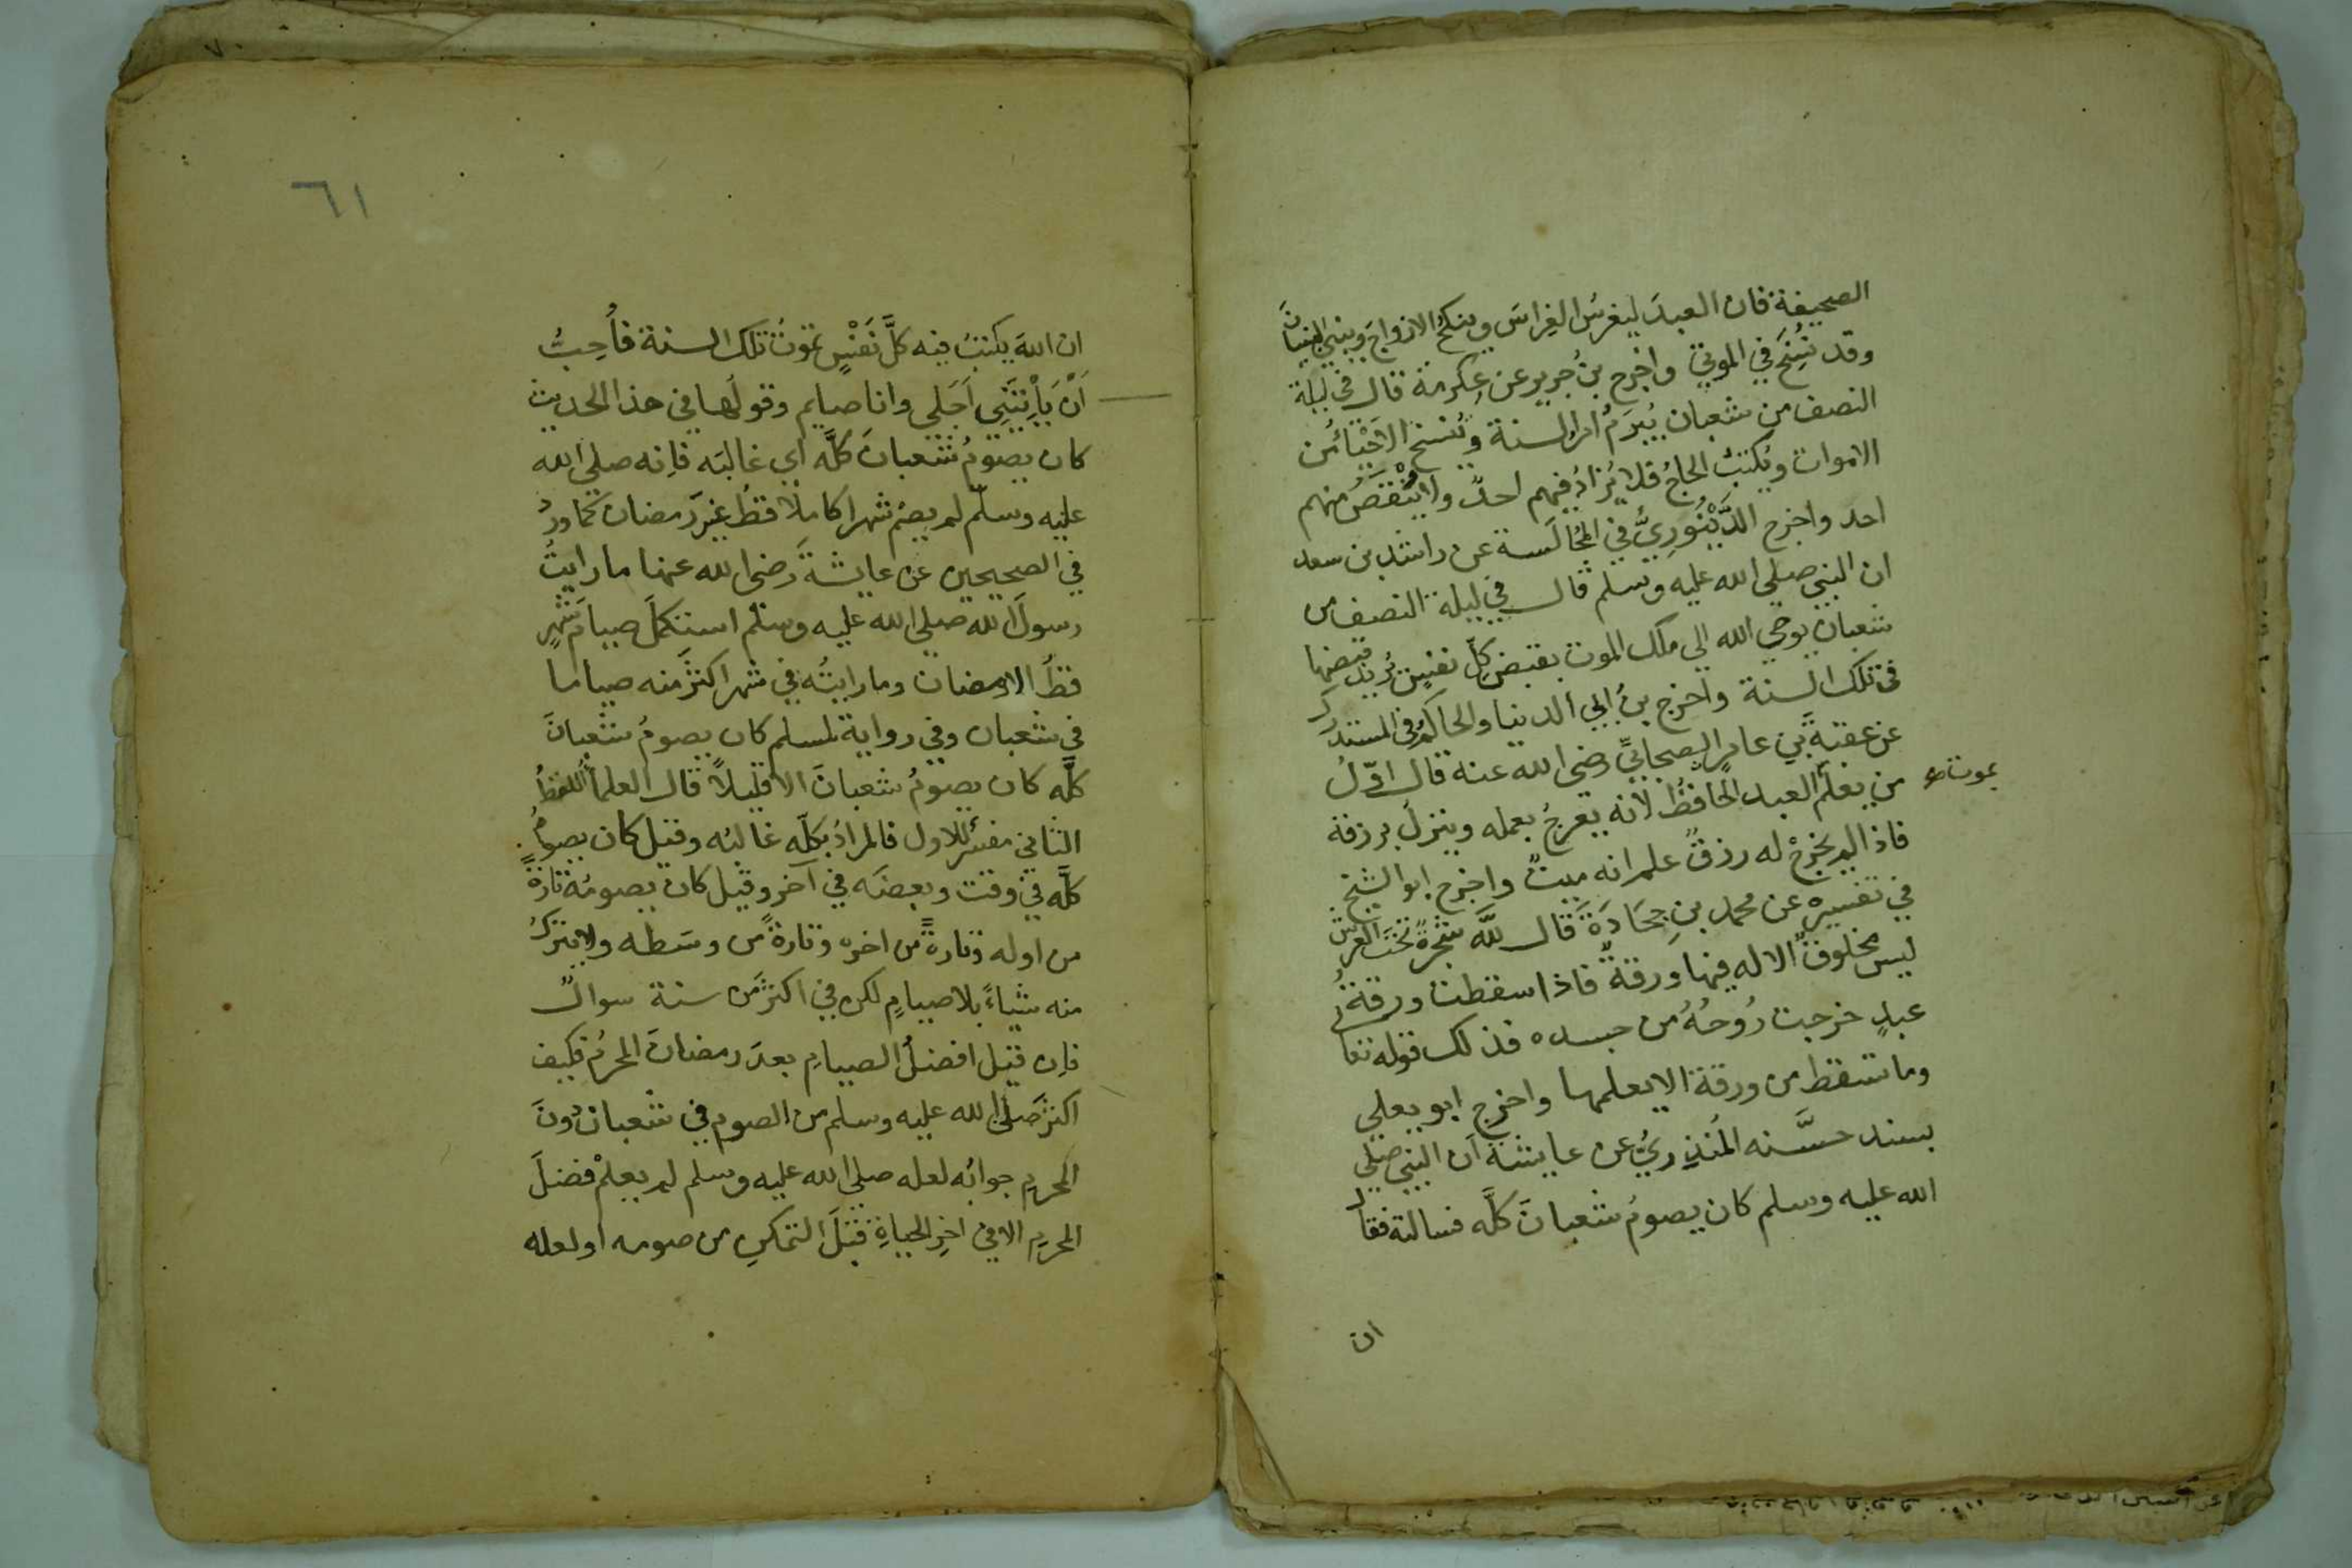 الصحيفة فان العبدَ ليغرسُ الغِراسَ وينكحُ الازواجَ ويبني البنيانَ
وقد نُسِخَ في الموتى واخرج بنُ جرير عن عِكرمة قال في ليلة
النصف من شعبان يُبرَمُ امرُ السنة وتُنسخ الاحْيَائُ من
الاموات ويُكتبُ الحاجُ فلا يُزادُ فيهم احدٌ ولا يُنْقَصُ منهم
احد واخرج الدَّيْنُورِيُّ في المُجالَسة عن راشد بن سعد
ان النبي صلى الله عليه وسلم قال في ليلة النصف من
شعبان يوحي الله الى ملك الموت بقبضِ كلِّ نفسٍ يُريد قبضها
في تلك السنة واخرج بنُ ابي الدنيا والحاكمُ في المستدرك
عن عقبةَ بنِ عامرٍ الصحابيِّ رضى الله عنه قال اوّلُ
من يعلمُ العبد الحافظُ لانه يعرجُ بعمله وينزلُ برزقه
بموت صح
فاذا لم يخرجْ له رزقٌ علم انه ميتٌ واخرج ابو الشيخ
في تفسيره عن محمد بنِ جُحَادَةَ قال للّه شجرةٌ تحتَ العرش
ليس مخلوقٌ الا له فيها ورقةٌ فاذا سقطت ورقةُ
عبدٍ خرجت رُوحُهُ من جسده فذلك قوله تعا
وما تسقط من ورقة الا يعلمها واخرج ابو يعلى
بسند حسَّنه المُنذِريُّ عن عايشة ان النبي صلى
الله عليه وسلم كان يصومُ شعبانَ كلَّه فسالته فقال
ان
٦١
ان اللهَ يكتبُ فيه كلَّ نَفْسٍ تموتُ تلك السنة فأُحِبُّ
اَنْ يَأْتِيَنِي اَجَلي وانا صايم وقولُها في هذا الحديث
كان يصومُ شعبانَ كلَّه اي غالبَه فاِنه صلى الله
عليه وسلّم لم يصُم شهرا كاملا قطُ غيرَ رمضان كما ورد
في الصحيحين عن عايشةَ رضى الله عنها ما رايتُ
رسولَ الله صلى الله عليه وسلم استكملَ صيامَ شهرٍ
قطُ الا رمضان وما رايتُه في شهر اكثرَ منه صياما
في شعبان وفي رواية لمسلم كان يصومُ شعبانَ
كلَّه كان يصومُ شعبانَ الا قليلاً قال العلماُ اللفظُ
الثاني مفسِرٌ للاول فالمرادُ بكلّه غالبُه وقيل كان يصومُ
كلَّه في وقت وبعضَه في آخر وقيل كان يصومُه تارةً
من اوله وتارةً من اخره وتارةً من وسَطه ولا يتركُ
منه شياءً بلا صيامٍ لكن في اكثرَ من سنة سوالٌ
فاِن قيل افضلُ الصيامِ بعدَ رمضانَ المحرمُ فكيف
اكثرَ صلى الله عليه وسلم من الصوم في شعبان دُونَ
المحرمِ جوابُه لعله صلى الله عليه وسلم لم يعلمْ فضلَ
المحرمِ الا في اخِرِ الحياةِ قبلَ التمكنِ من صومه او لعله